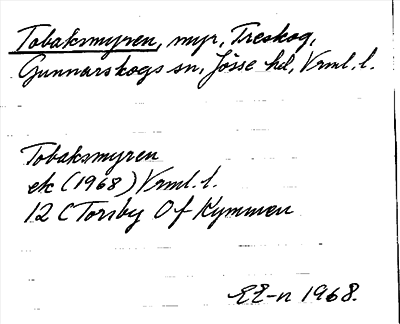 Tobaksmyren, myr, Treskog,
Gunnarskogs sn, Jösse hd, Vrml. l.
Tobaksmyren
ek (1968) Vrml. l.
12 C Torsby Of Kymmen
EE-n 1968.